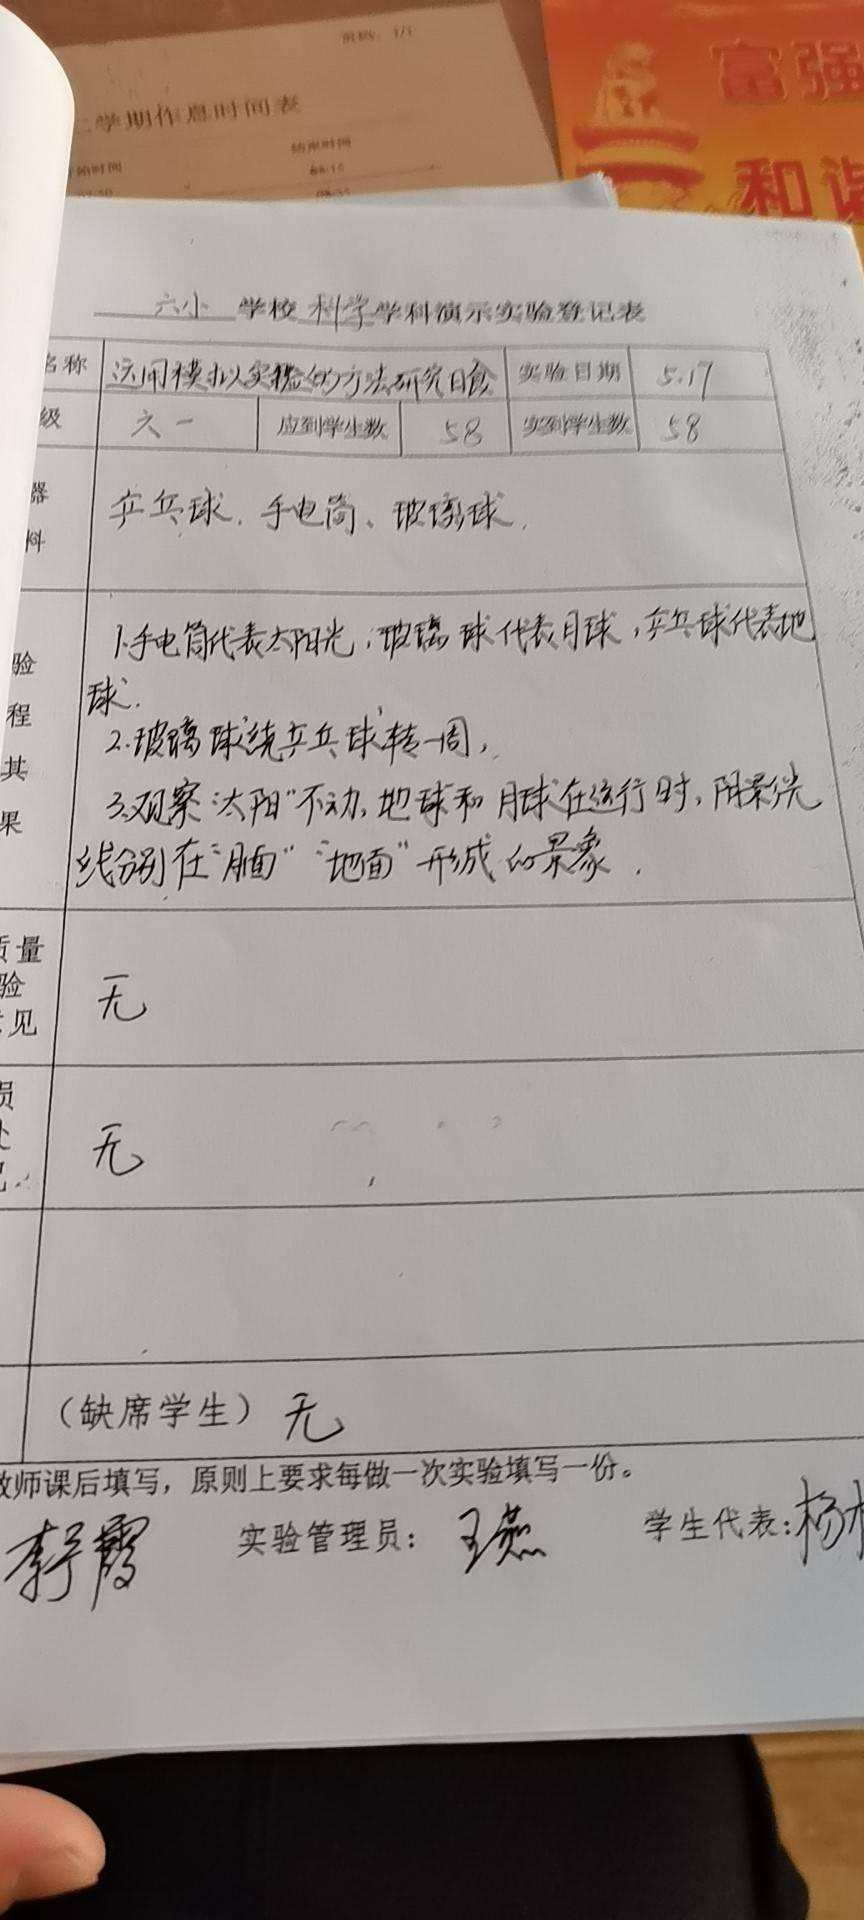 学期作息时间表
富强
和谐
六小 学校 科学 学科演示实验登记表
名称 运用模拟实验的方法研究日食 实验日期 5.17
级 六一 应到学生数 58 实到学生数 58
器
料
乒乓球、手电筒、玻璃球.
验
程
其
果
1.手电筒代表太阳光,玻璃球代表月球,乒乓球代表地
球.
2.玻璃球绕乒乓球转一周,
3.观察"太阳"不动,地球和月球在运行时,阴影光
线分别在"月面" "地面"形成的景象.
质量
验
意见
无
员
处
记
无
(缺席学生) 无
教师课后填写,原则上要求每做一次实验填写一份。
李霞 实验管理员: 王燕 学生代表:杨